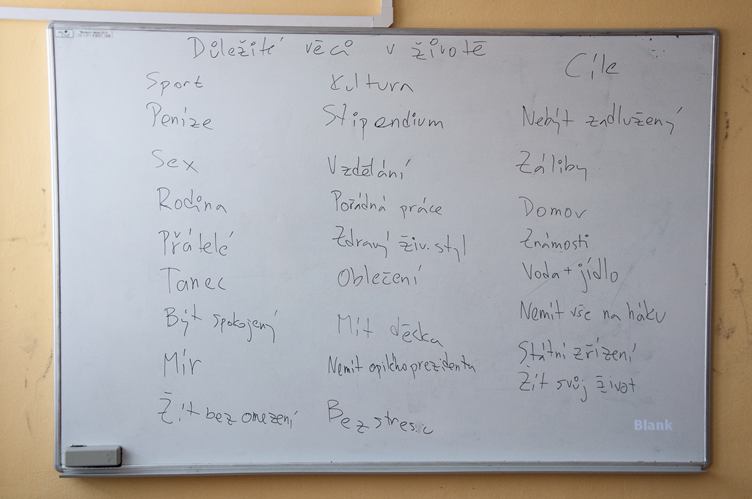 Důležité věci v životě
Sport
Peníze
Sex
Rodina
Přátelé
Tanec
Být spokojený
Mír
Žít bez omezení
Kultura
Stipendium
Vzdělání
Pořádná práce
Zdravý živ. styl
Oblečení
Mít děcka
Nemít opilého prezidenta
Bez stresu
Cíle
Nebýt zadlužený
Záliby
Domov
Známosti
Voda + jídlo
Nemít vše na háku
Státní zřízení
Žít svůj život
Blank